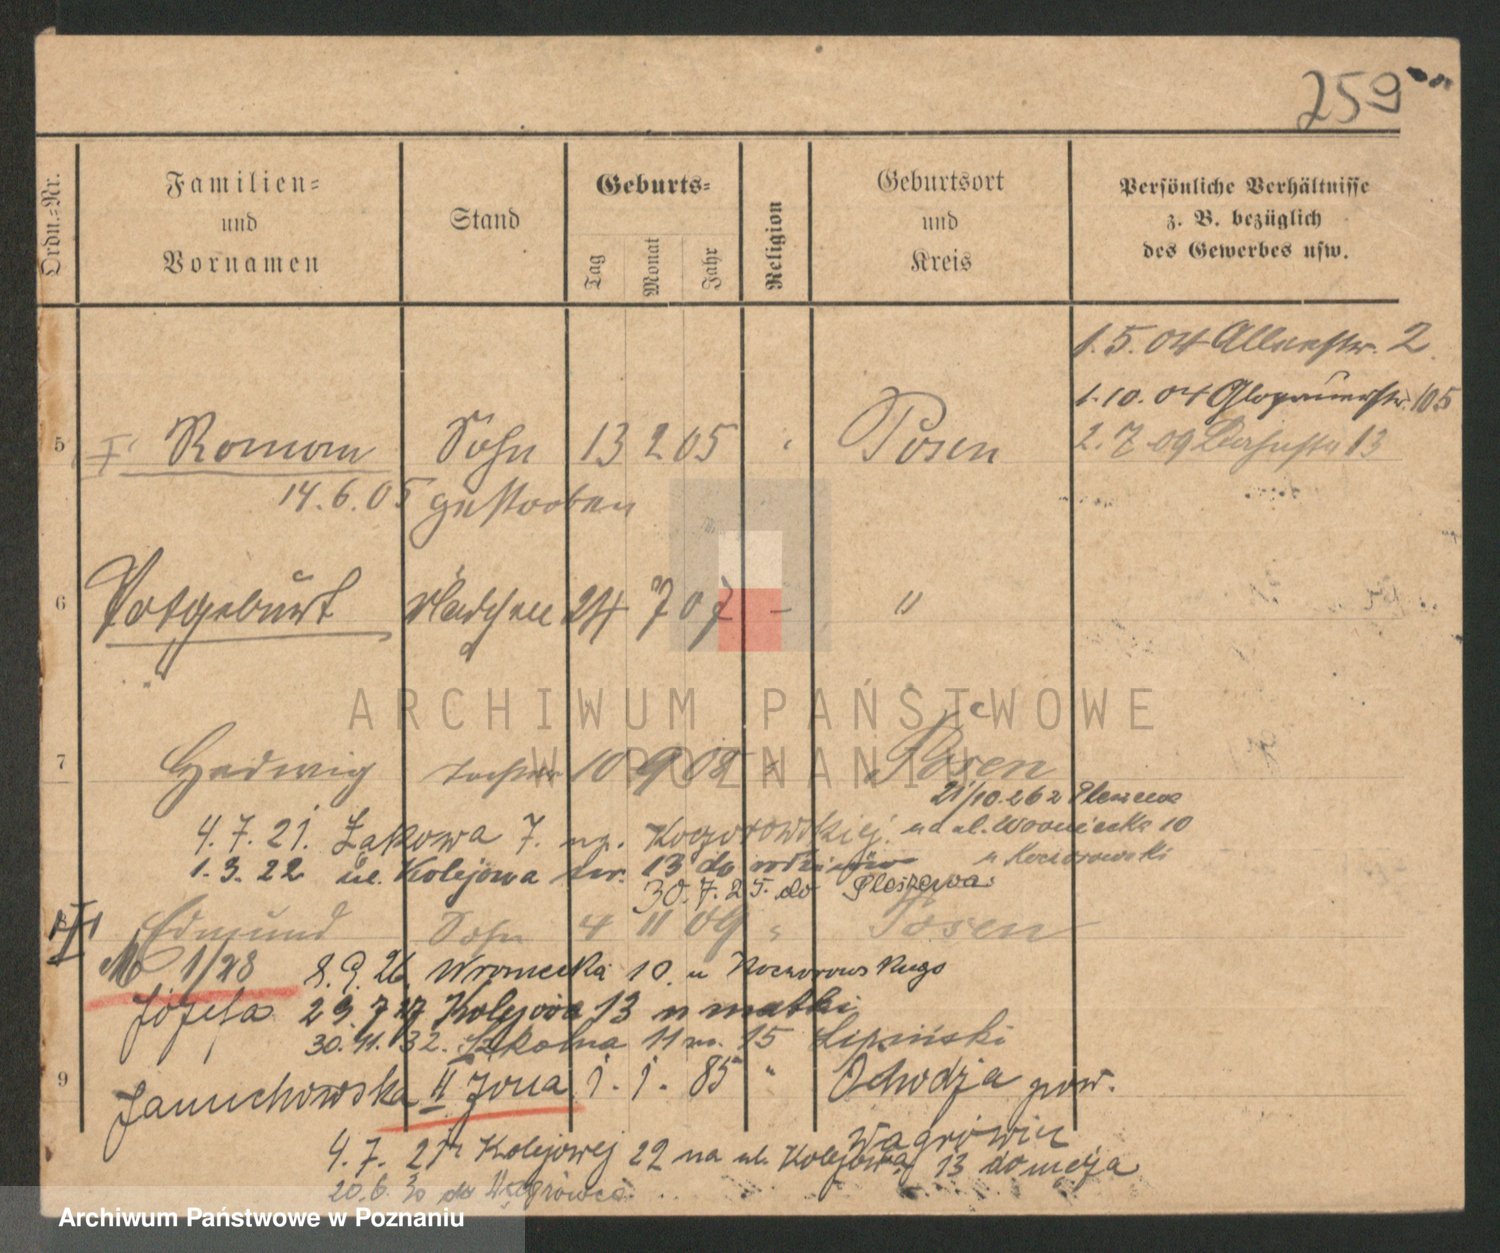 259
Ordn.-Nr.
Familien-
und
Vornamen
Stand
Geburts-
Tag
Monat
Jahr
Religion
Geburtsort
und
Kreis
Persönliche Verhältnisse
z. B. bezüglich
des Gewerbes usw.
1.5.04 2
1.10.04 Glogauerstr. 105
2.7.09 13
5 Roman Sohn 13 2 05 Posen
14.6.05 gestorben
6 Totgeburt Mädchen 24 7 07 - "
ARCHIWUM PAŃSTWOWE
W POZNANIU
7 Hedwig Tochter 10 9 08 " Posen
21/10.26 z Pleszewa
4.7.21. Łąkowa 7. Kogorowskiej. 10
1.3.22 ul. Kolejowa nr. 13 do rodziców
30.7.25. do Pleszewa.
Edmund Sohn 4 11 09 " Posen
1/28 8.9.26. Wroniecka 10. u
Józefa 29.7.27 Kolejowa 13 u matki
30.11.32. Szkolna 11 m. 15 Lipiński
9 Januchowska II żona 1. 1. 85 " Ochodza pow.
Wągrówiec
4.7.21 Kolejowej 22 na ul. Kolejową 13 do męża
20.6.30 do Wągrówca.
Archiwum Państwowe w Poznaniu